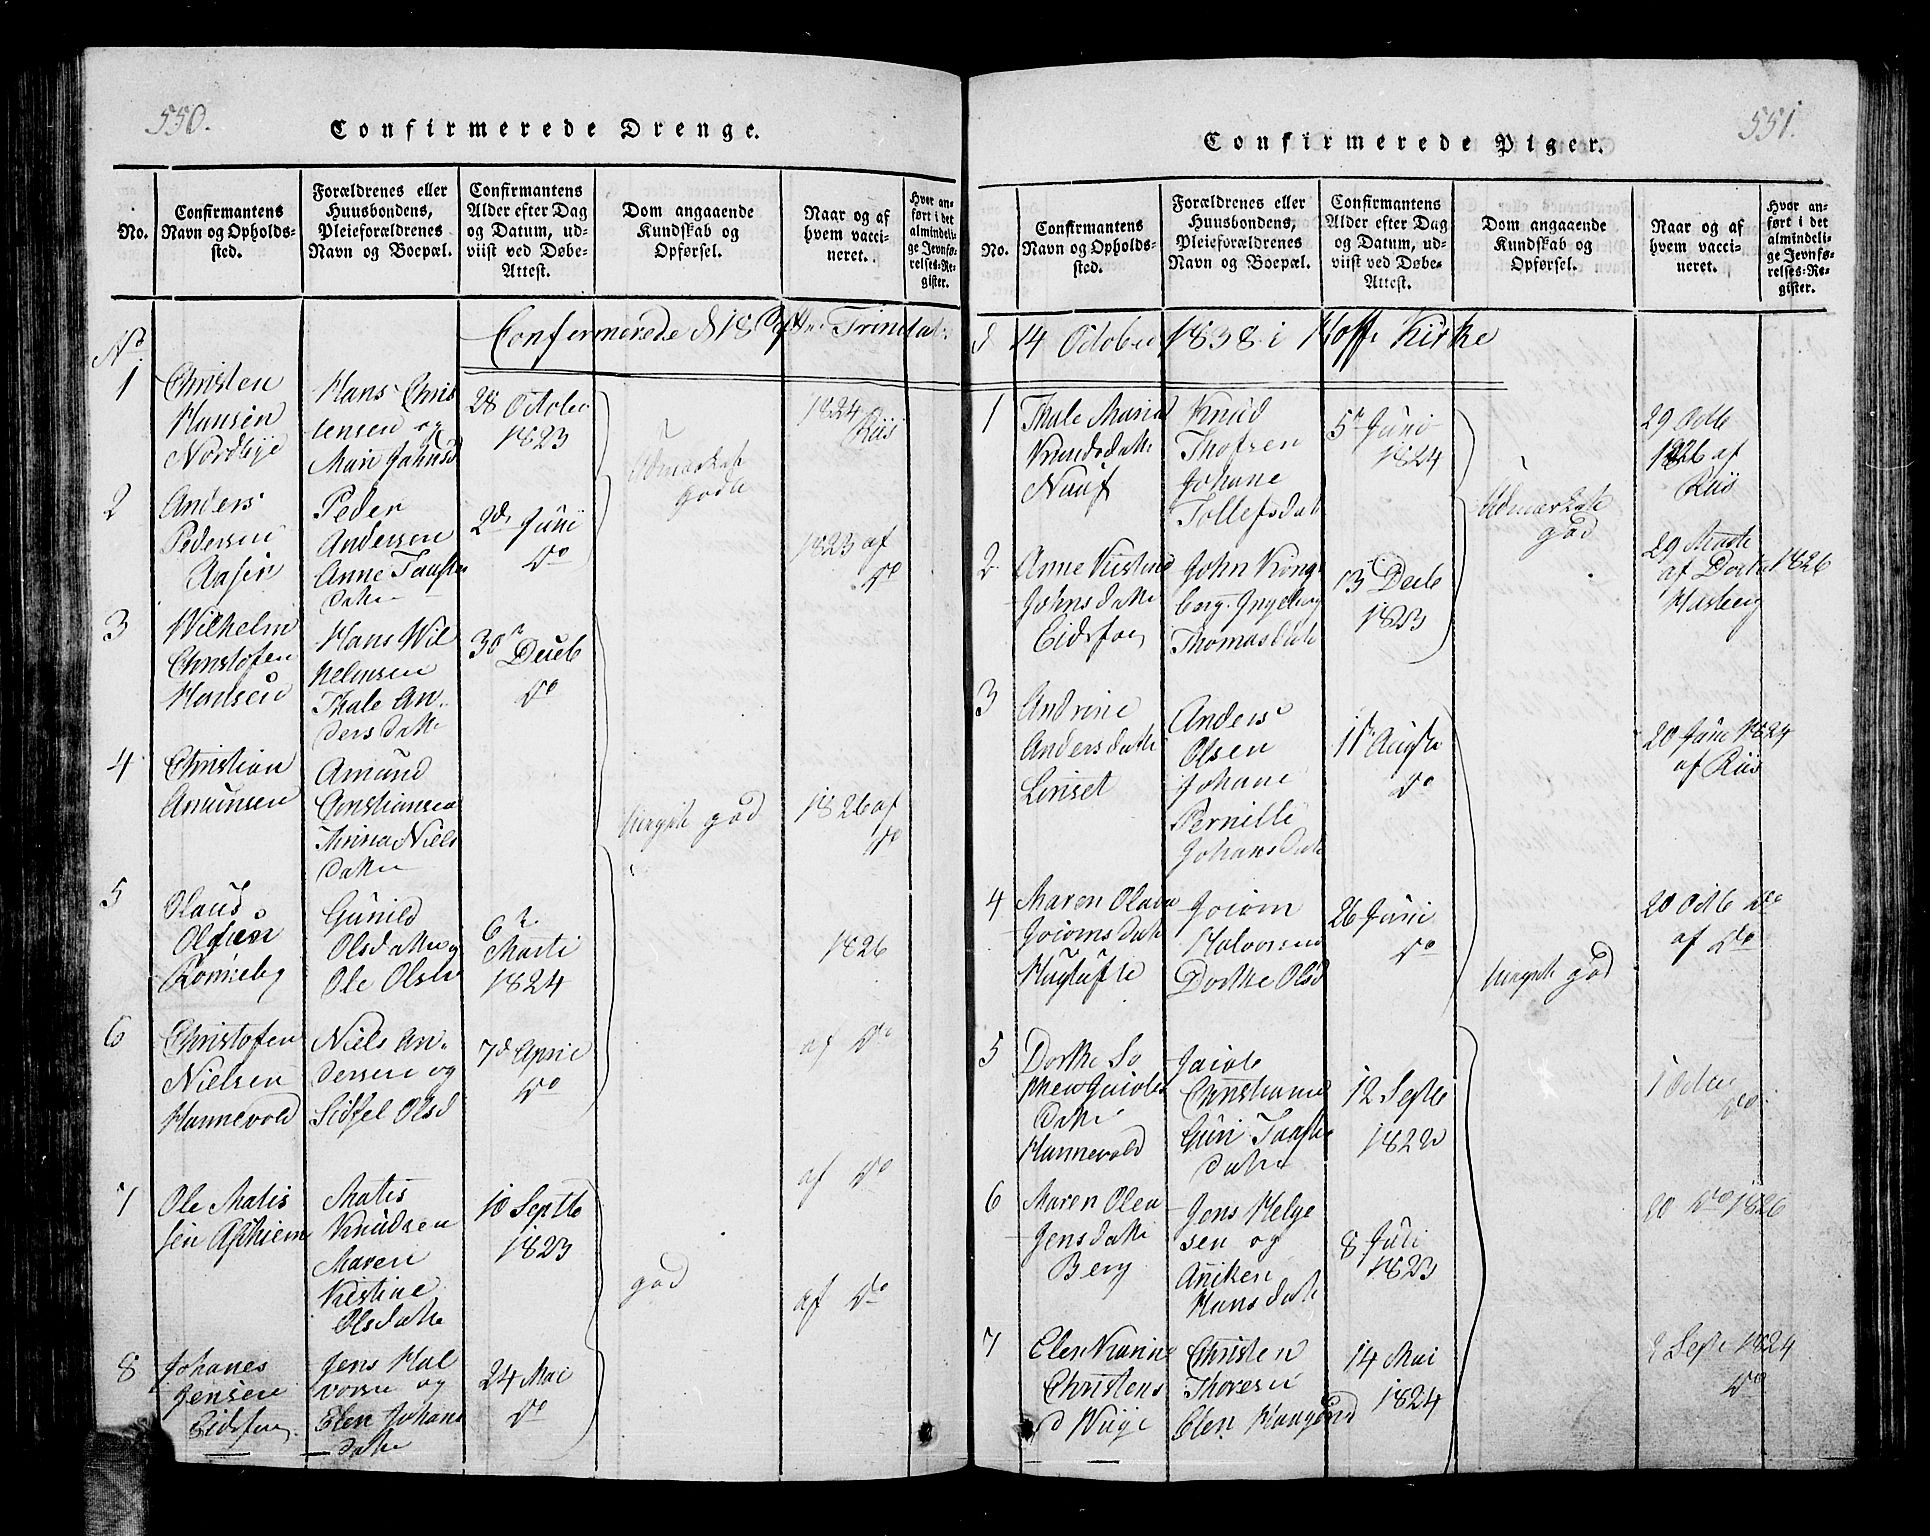 550.
Confirmerede Drenge.
No.
Confirmantens
Navn og Opholds-
sted.
Forældrenes eller
Huusbondens,
Pleieforældrenes
Navn og Boepæl.
Confirmantens
Alder efter Dag
og Datum, ud-
viist ved Døbe-
Attest.
Dom angaaende
Kundskab og
Opførsel.
Naar og af
hvem vacci-
neret.
Hvor an-
ført i det
almindeli-
ge Jevnfø-
relses-Re-
gister.
Confermerede d 18 Trinitat:
No
1
Christen
Hansen
Nordbye
Hans Chris
tensen og
Mari Jahnsd
28 Octobr
1823
Udmærket
Godt
1824
Riis
2
Anders
Pedersen
Aasen
Peder
Andersen
Anne
datter
2den Juni
do
1823 af
do
3
Wilhelm
Christofen
Hansen
Hans Wil
helmsen
Thale An-
dersdatte
30 Decb
do
4
Christian
Amunsen
Amund
Christiansen
Niels
datter
meget god
1826 af
do
5
Olaus
Olsen
Gunild
Olsdatter og
Ole Olsen
6
Marti
1824
1826
6
Christofen
Nielsen
Hannevold
Niels An-
dersen og
Sidsel Olsd
7d April
do
af do
7
Ole Matis
sen
Matis
Knudsen
Maren
Kristine
Olsdatte
10 Septb
1823
god
af do
8
Johanes
Jensen
Eidsfos
Jens Hal
vorsen og
Elen Johans
datter
24 Mai
do
af do
551.
Confirmerede Piger.
No.
Confirmantens
Navn og Opholds-
sted.
Forældrenes eller
Huusbondens,
Pleieforældrenes
Navn og Boepæl.
Confirmantens
Alder efter Dag
og Datum, ud-
viist ved Døbe-
Attest.
Dom angaaende
Kundskab og
Opførsel.
Naar og af
hvem vacci-
neret.
Hvor an-
ført i det
almindeli-
ge Jevnfø-
relses-Re-
gister.
d 14 October 1838 i Hoff Kirke
1
Thale Maria
Knudsdatte
Knud
Thofsen
Johane
Tollefsdat
5 Juni
1824
Udmærkete
god
29 Octb
1826 af
Riis
2
Anne Kistine
Johnsdatte
Eidsfos
John Kong
berg. Ingeborg
Thomasdate
13 Decb
1823
29
af Dorthe 1826
3
Andrine
Andersdatte
Linset
Anders
Olsen
Johane
Pernille
Johansdate
11 Augst
do
20 Juni 1824
af Riis
4
Maren Olava
Halvorsen
Dorthe Olsd
26 Juni
do
meget god
20 Octb do
af do
5
Dorthe So
phie Jacobs
datte
Hannevold
Jacob
Christians
Guri
datter
12 Septb
1822
1 Octb
do
6
Maren Olea
Jensdatte
Berg
Jens Helge
sen og
Aniken
Hansdate
8 Juli
1823
20 do 1826
7
Elen Karine
Christens
d
Christen
Thoresen
Elen
14 Mai
1824
2 Septb 1824
do